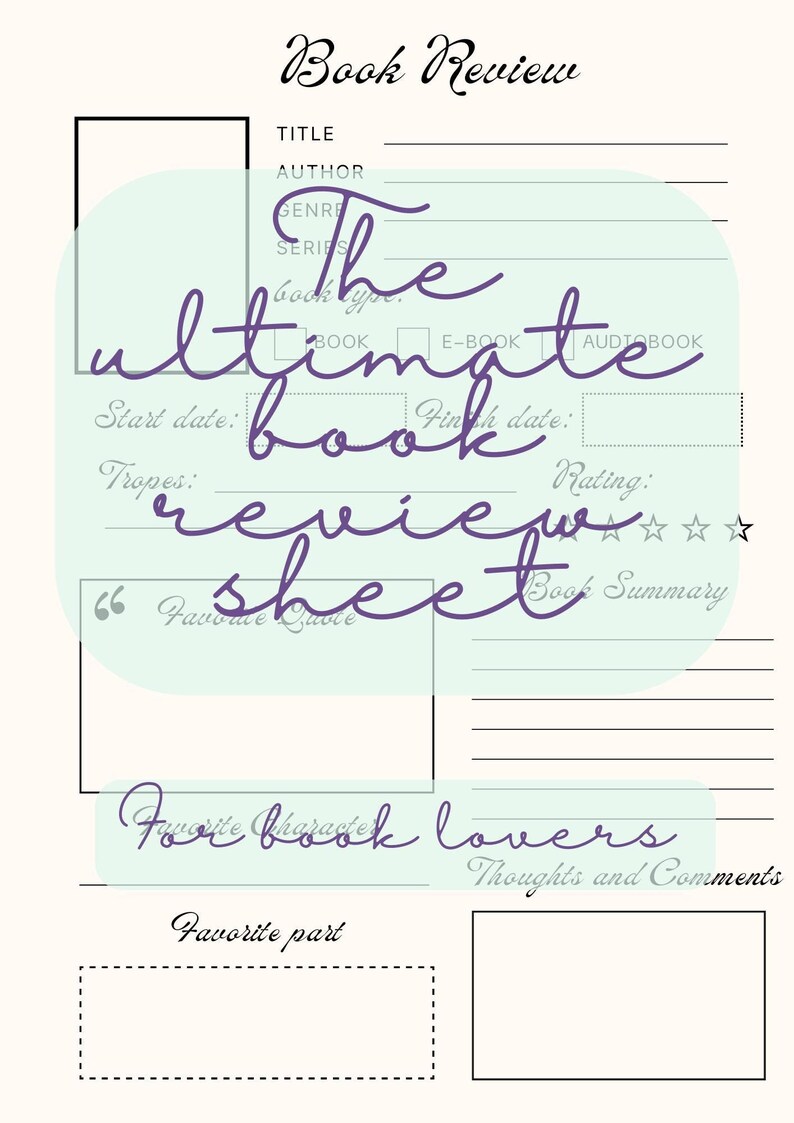 Book Review
TITLE
AUTHOR
GENRE
SERIES
book type:
BOOK E-BOOK AUDIOBOOK
Start date: Finish date:
Tropes: Rating:
The
ultimate
book
review
sheet
“ Favorite Quote
Book Summary
Favorite Character
For book lovers
Thoughts and Comments
Favorite part